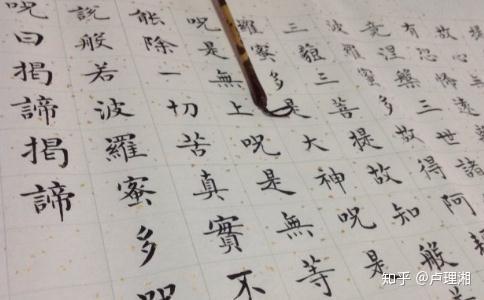 故心無
有恐怖遠
竟涅槃三世諸
波羅蜜多故得阿
三藐三菩提故知般
羅蜜多是大神咒是
呪是無上呪是無等
能除一切苦真實不
說般若波羅蜜多
呪曰揭諦揭諦
知乎 @卢理湘